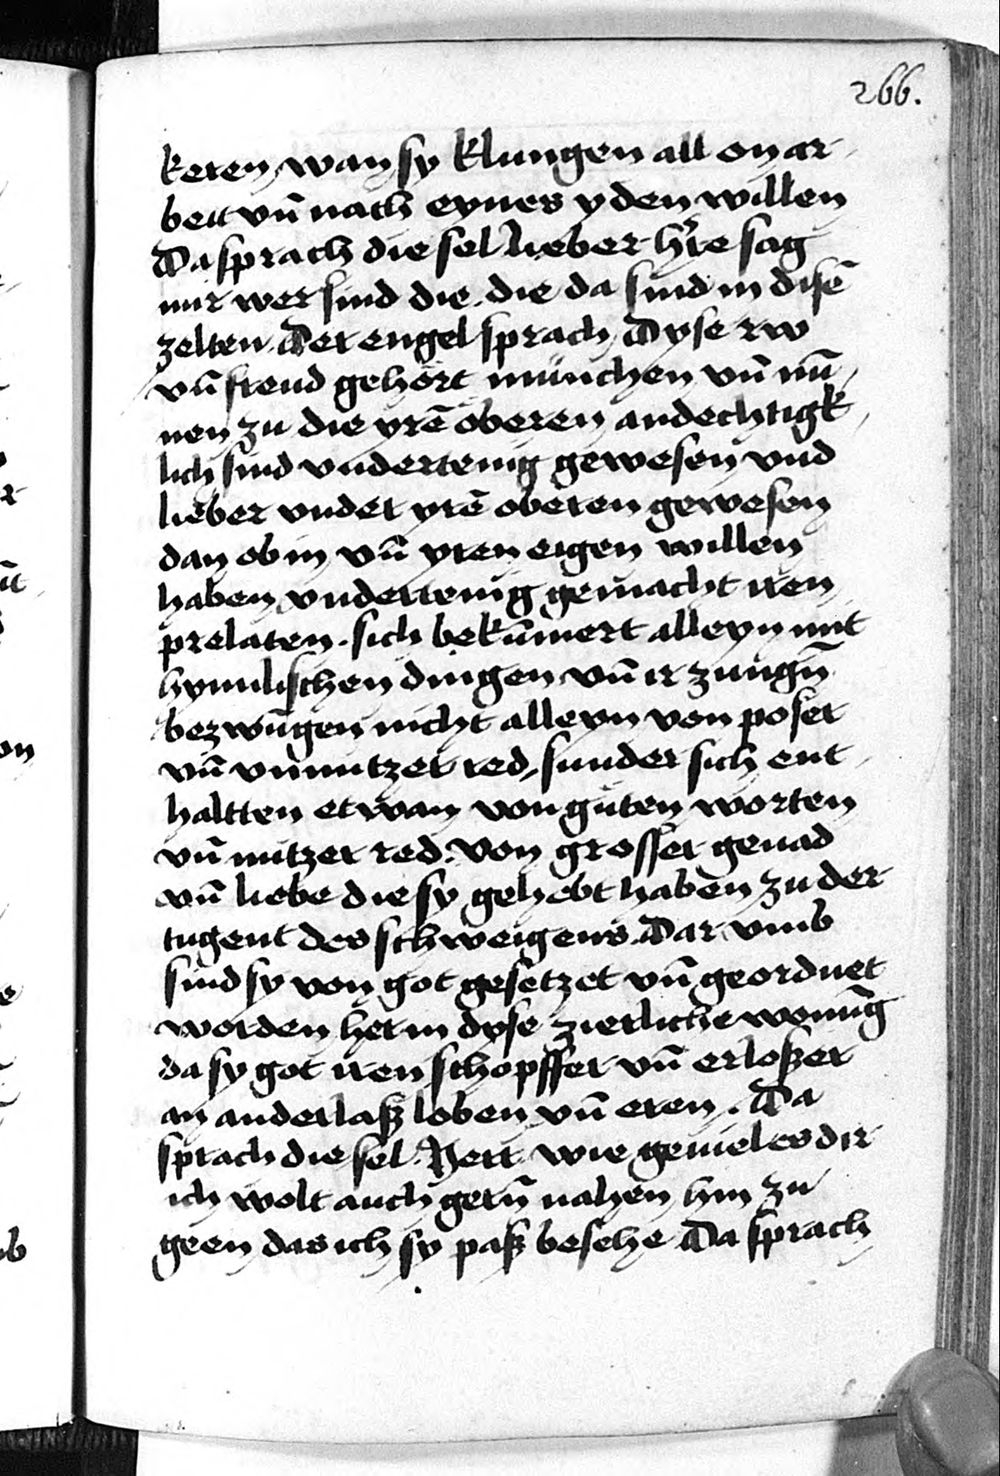 266.
keren wan sy klungen all on ar
beit vn̄ nach eynes yden willen
Da sprach die sel lieber h̄re sag
mir wer sind die. die da sind in disē
zelten Der engel sprach Dyse rw
vn̄ freud gehört münchen vn̄ nū
nen zu die yrē oberen andechtigk
lich sind vndertenig gewesen vnd
lieber vnder yrē oberen gewesen
dan ob in vn̄ yren eigen willen
haben vndertenig gemacht iren
prelaten. sich bekūmert alleyn mit
hymilischen dingen vn̄ ir zungn̄
bezwūgen nicht alleyn von poser
vn̄ vnnutzer red, sunder sich ent
haltten etwan von guten worten
vn̄ nutzer red. von grosser genad
vn̄ liebe die sy gehebt haben zu der
tugent des schweigens. Dar vmb
sind sy von got gesetzet vn̄ geordnet
worden her in dyse zierliche wonūg
da sy got iren schopffer vn̄ erloßer
an anderlaß loben vn̄ eren. Da
sprach die sel. Herr wie geuieles dir
ich wolt auch gern̄ nahen hin zu
geen das ich sy paß besehe Da sprach